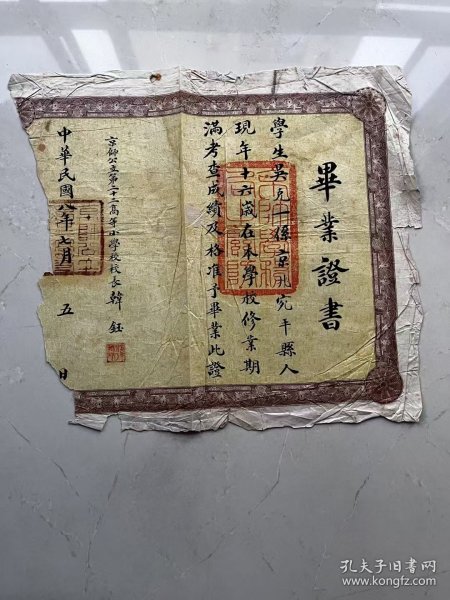 畢業證書
學生吳克一係京兆宛平縣人
現年十六歲在本學校修業期
滿考查成績及格准予畢業此證
京師公立第二十三高等小學校校長韓鈺
中華民國八年七月 五 日
孔夫子旧书网
www.kongfz.com